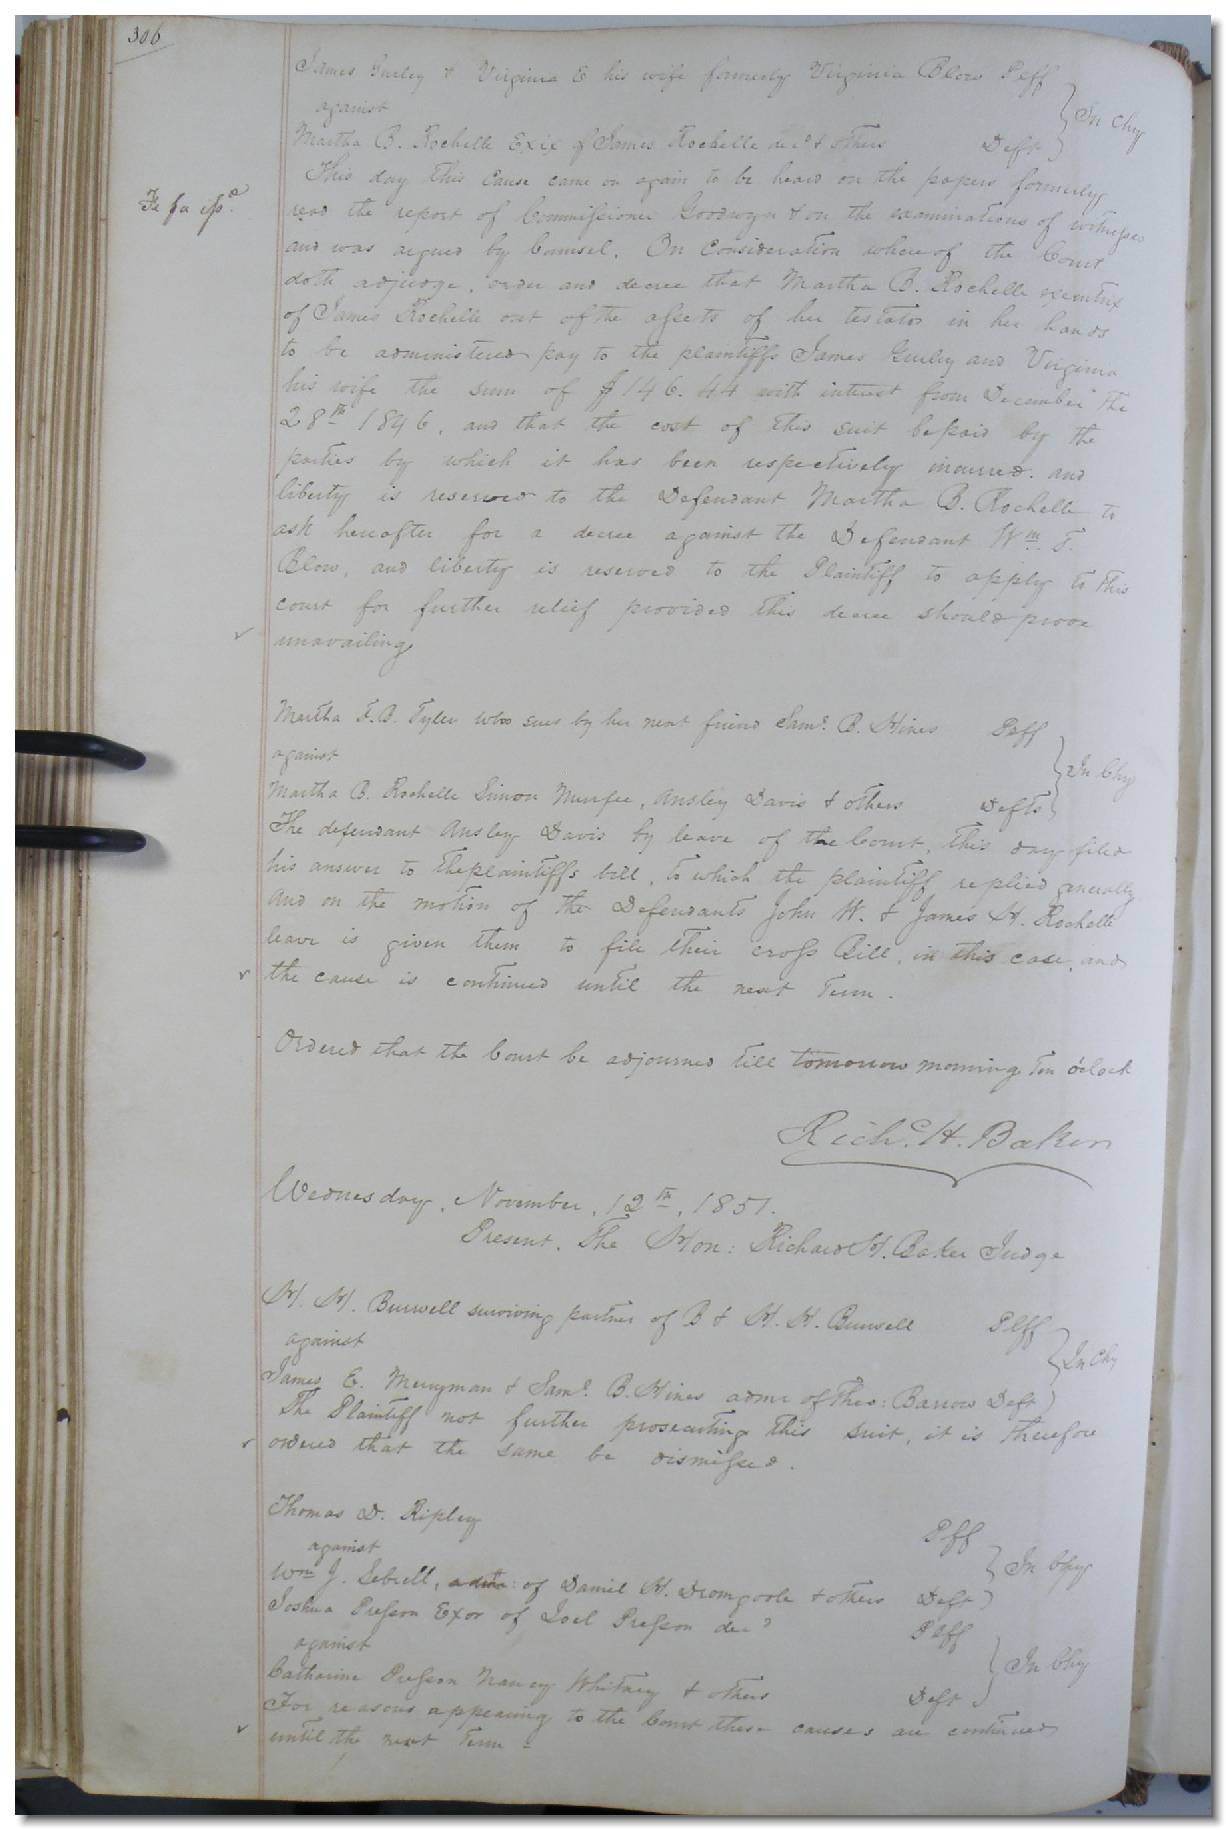 306
James Gurley & Virginia E his wife formerly Virginia Blow Plff
against
In Chy
Martha B. Rochelle Exix of James Rochelle decd & others Deft
This day this Cause came on again to be heard on the papers formerly
Fi fa issd.
read the report of Commissioner Goodwyn & on the examinations of witnesses
and was argued by Counsel. On Consideration whereof the Court
doth adjudge, order and decree that Martha B. Rochelle executrix
of James Rochelle out of the assets of her testator in her hands
to be administered pay to the plaintiffs James Gurley and Virginia
his wife the sum of $146.44 with interest from December the
28th 1846, and that the cost of this suit be paid by the
parties by which it has been respectively incurred. and
liberty is reserved to the Defendant Martha B. Rochelle to
ask hereafter for a decree against the Defendant Wm. T.
Blow, and liberty is reserved to the Plaintiff to apply to this
court for further relief provided this decree should prove
unavailing
Martha F. B. Tyler who sues by her next friend Saml. B. Hines Plff
against
In Chy
Martha B. Rochelle Simon Murfee, Ansley Davis & others Defts
The defendant Ansley Davis by leave of the Court, this day filed
his answer to the plaintiffs bill, to which the plaintiff replied generally
And on the motion of the Defendants John W. & James H. Rochelle
leave is given them to file their cross Bill, in this case, and
the cause is continued until the next Term.
Ordered that the Court be adjourned till tomorrow morning Ten o'clock
Richd. H. Baker
Wednesday, November, 12th, 1851.
Present. The Hon: Richard H. Baker Judge
H. H. Burwell surviving partner of B & H. H. Burwell Plff
against
In Chy
James E. Merryman & Saml. B. Hines admr of Theo: Barrow Deft
The Plaintiff not further prosecuting this suit, it is therefore
ordered that the same be dismissed.
Thomas D. Ripley Plff
against
In Chy
Wm J. Sebrell, admr: of Daniel H. Dromgoole & others Deft
Joshua Presson Exor of Joel Presson decd Plff
against
In Chy
Catharine Presson Nancy Whitney & others Deft
For reasons appearing to the Court these causes are continued
until the next Term -